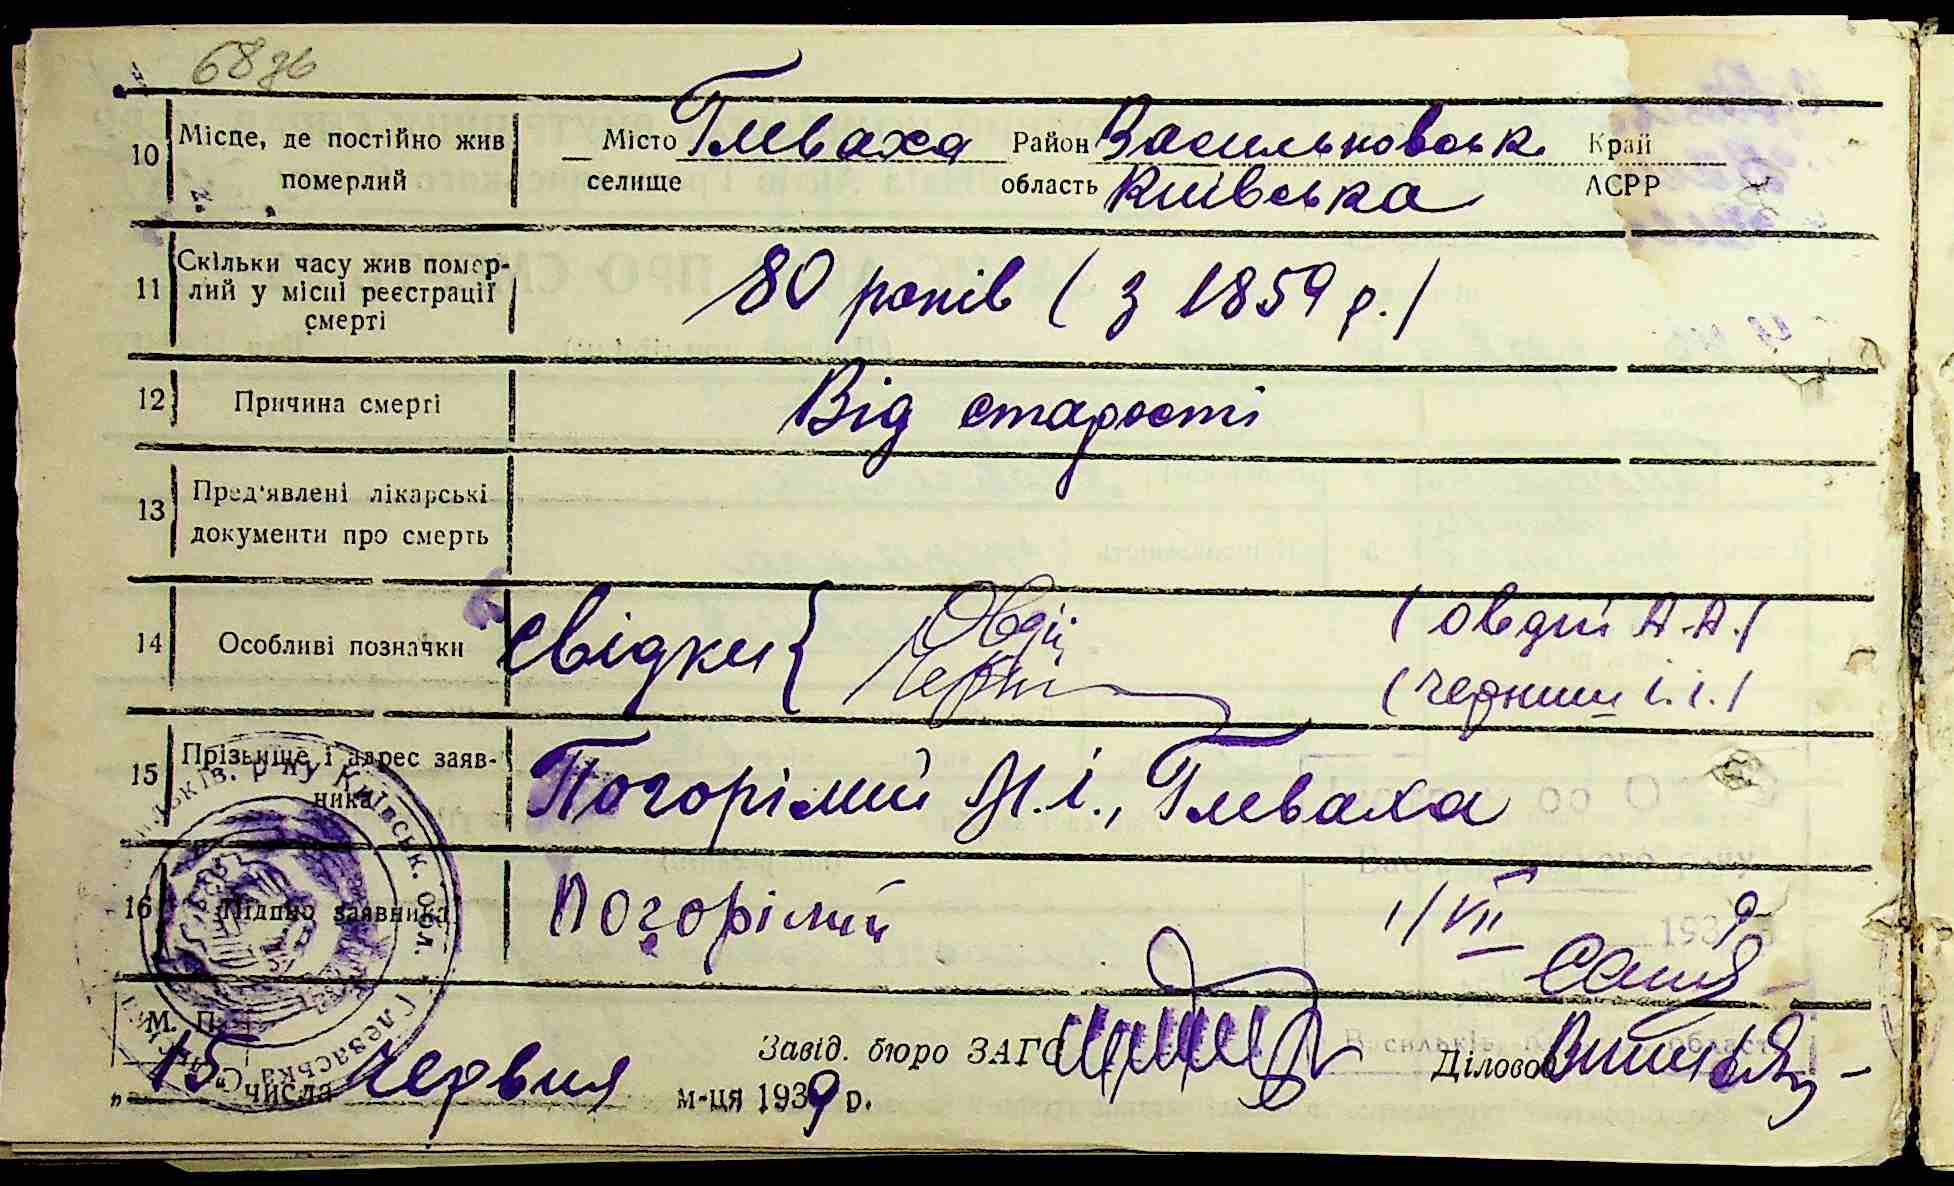 68зв
10 Місце, де постійно жив Місто Глеваха Район Васильковськ Край
померлий селище область Київська АСРР
11 Скільки часу жив помер-
лий у місці реєстрації 80 років ( з 1859 р. /
смерті
12 Причина смерті Від старості
13 Пред'явлені лікарські
документи про смерть
14 Особливі позначки свідки { Овдій ( Овдій А.А. /
Черн ( Черниш І. І. /
15 Прізвище і адрес заяв- Погорілий М. І., Глеваха
ника
16 Підпис заявника Погорілий 1/VII
М. П.
Завід. бюро ЗАГС Діловод
„ 15 " числа Червня м-ця 1939 р.
р-ну Київськ. обл.